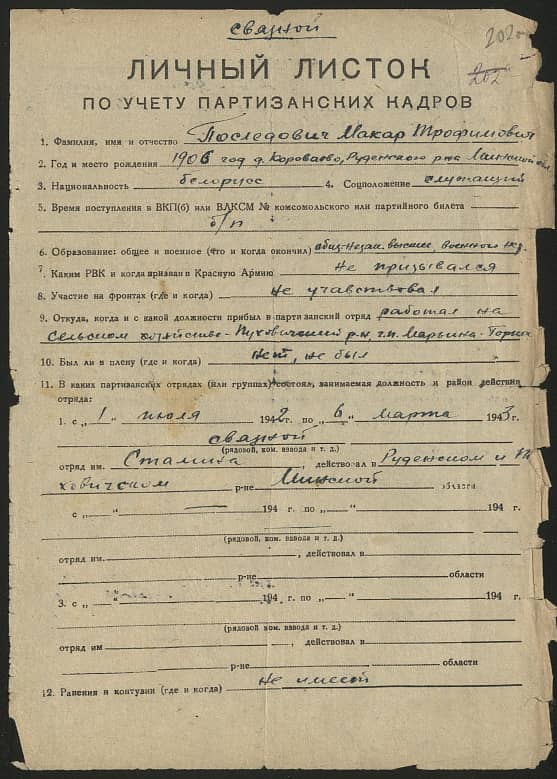 связной
202
202
ЛИЧНЫЙ ЛИСТОК
ПО УЧЕТУ ПАРТИЗАНСКИХ КАДРОВ
1. Фамилия, имя и отчество Последович Макар Трофимович
2. Год и место рождения 1906 год д. Короваево, Руденского р-на Минской обл.
3. Национальность белорус 4. Соцположение служащий
5. Время поступления в ВКП(б) или ВЛКСМ № комсомольского или партийного билета
б/п
6. Образование: общее и военное (что и когда окончил) общ. незак. высшее, военного нет
7. Каким РВК и когда призван в Красную Армию не призывался
8. Участие на фронтах (где и когда) не участвовал
9. Откуда, когда и с какой должности прибыл в партизанский отряд работал на
сельском хозяйстве - Пуховичский р-н, г.п. Марьина-Горка
10. Был ли в плену (где и когда) нет, не был
11. В каких партизанских отрядах (или группах) состоял, занимаемая должность и район действия
отряда:
1. с „1" июля 1942 г. по „6" марта 1943 г.
связной
(рядовой, ком. взвода и т. д.)
отряд им. Сталина, действовал в Руденском и Пу
ховичском р-не Минской области
с „ " — 194 г. по „ " 194 г.
(рядовой, ком. взвода и т. д.)
отряд им. , действовал в
р-не области
3. с „ " 194 г. по „ " 194 г.
(рядовой, ком. взвода и т. д.)
отряд им , действовал в
р-не области
12. Ранения и контузии (где и когда) не имеет